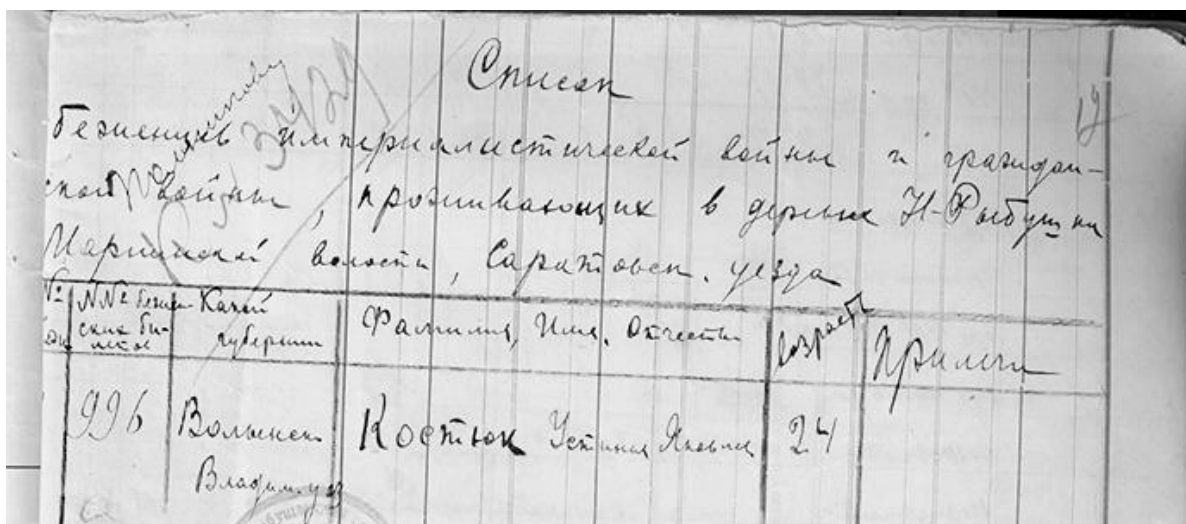 Список
17
беженцев империалистической войны и граждан-
ской войны, проживающих в деревне Н-Рыбушки
волости, Саратовск. уезда
№ №№ беженских билетов Какой губернии Фамилия, Имя, Отчество возраст Примеч
996 Волынск Владим. уез Костюк Устинья Яковлев 24